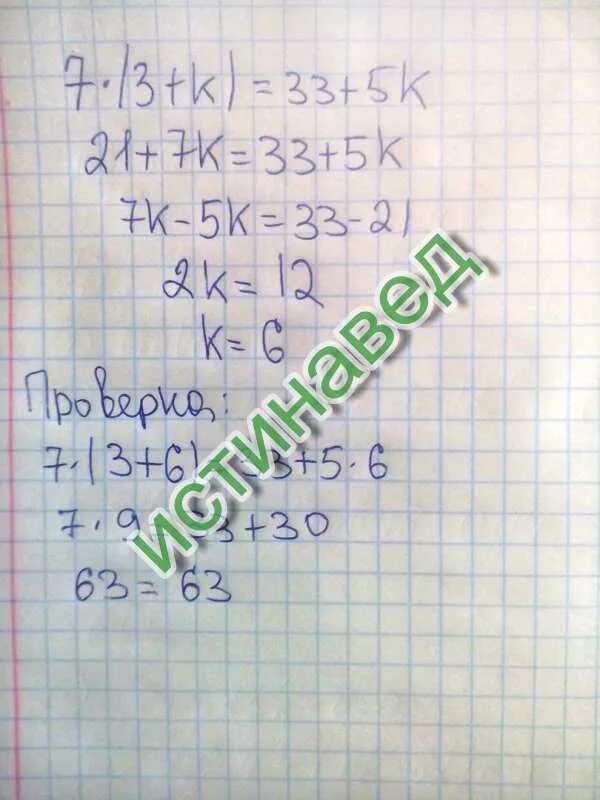 7·(3+k)=33+5k
21+7k=33+5k
7k-5k=33-21
2k=12
k=6
Проверка:
7·(3+6) 3+5·6
7·9 3+30
63=63
ИСТИНАВЕД